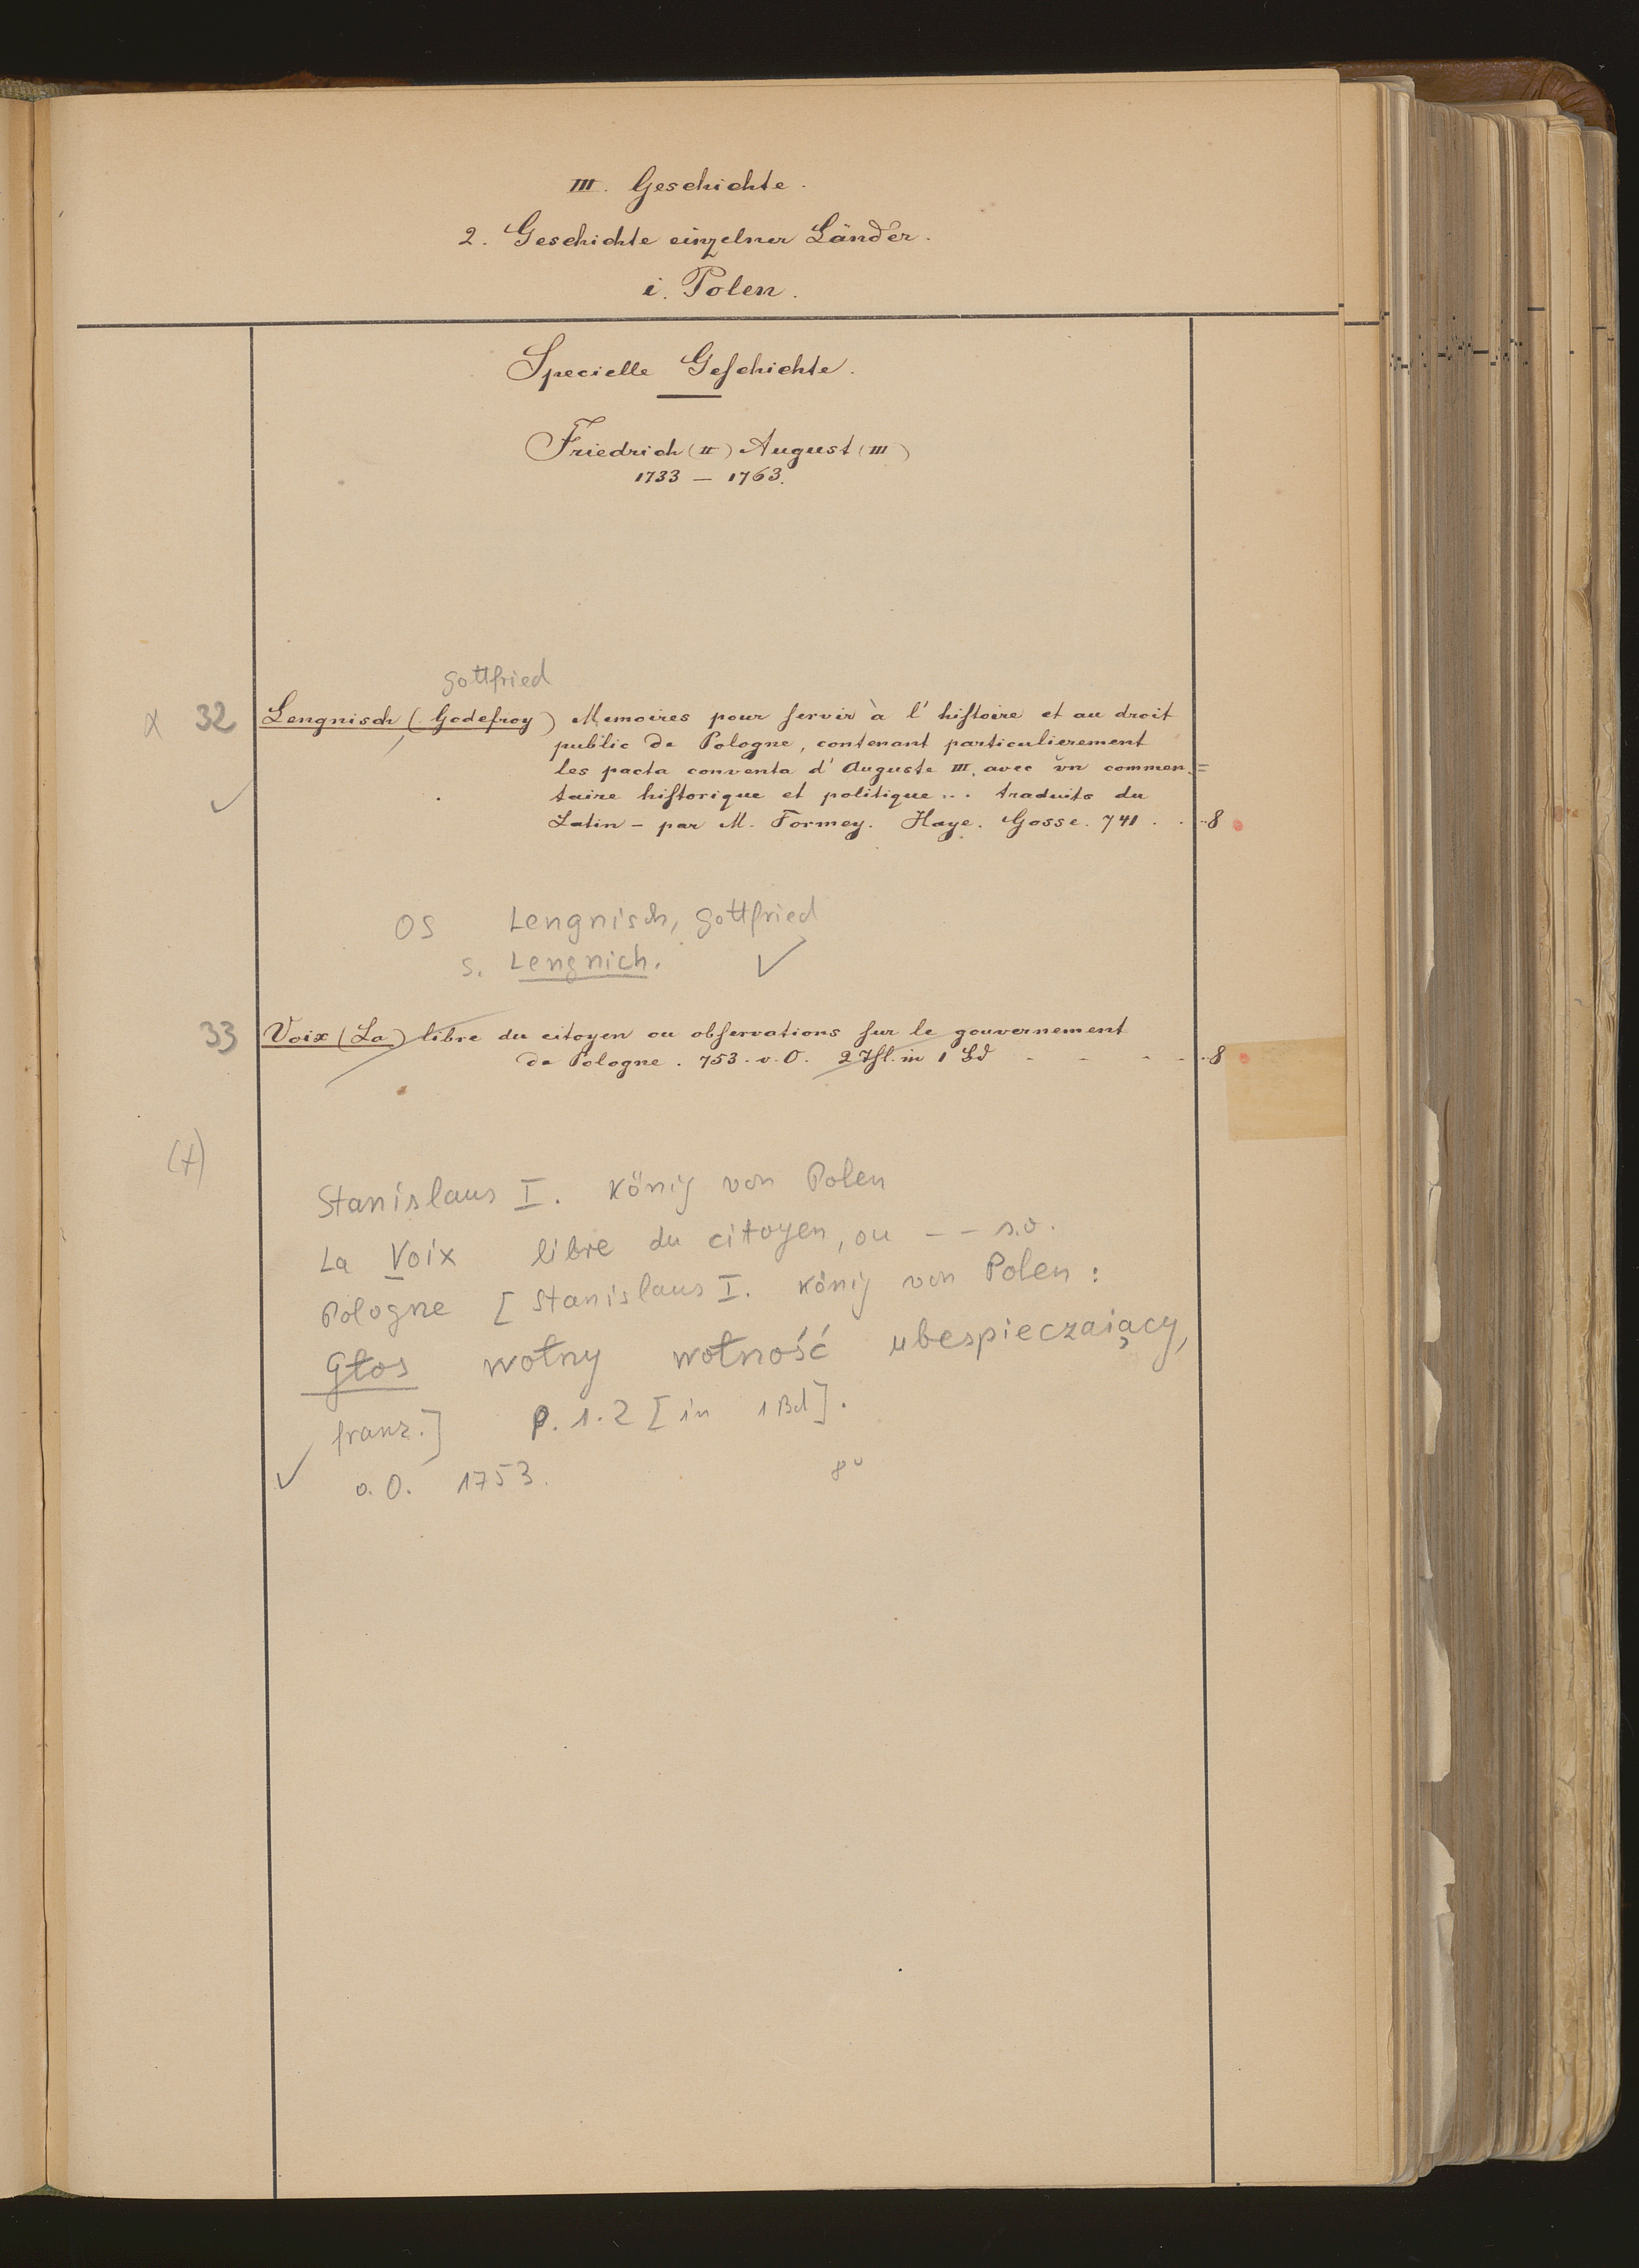 III. Geschichte.
2. Geschichte einzelner Länder.
i. Polen.
Specielle Geſchichte.
Friedrich (II) August (III)
1733 — 1763.
Gottfried
x 32 Lengnisch (Godefroy) Memoires pour ſervir à l' hiſtoire et au droit
public de Pologne, contenant particulierement
les pacta conventa d' Auguste III. avec un commen=
taire hiſtorique et politique... traduits du
Latin – par M. Formey. Haye. Gosse. 741 . . 8
OS Lengnisch, Gottfried
s. Lengnich. ✓
33 Voix (La) libre du citoyen ou obſervations ſur le gouvernement
de Pologne. 753. o. O. 2 Thl. in 1 Bd - - - - 8
(x)
Stanislaus I. König von Polen
La Voix libre du citoyen, ou – – s.o.
Pologne [Stanislaus I. König von Polen:
Głos wolny wolność ubespieczaiący,
franz.] P. 1.2 [in 1 Bd].
✓ o.O. 1753. 8°